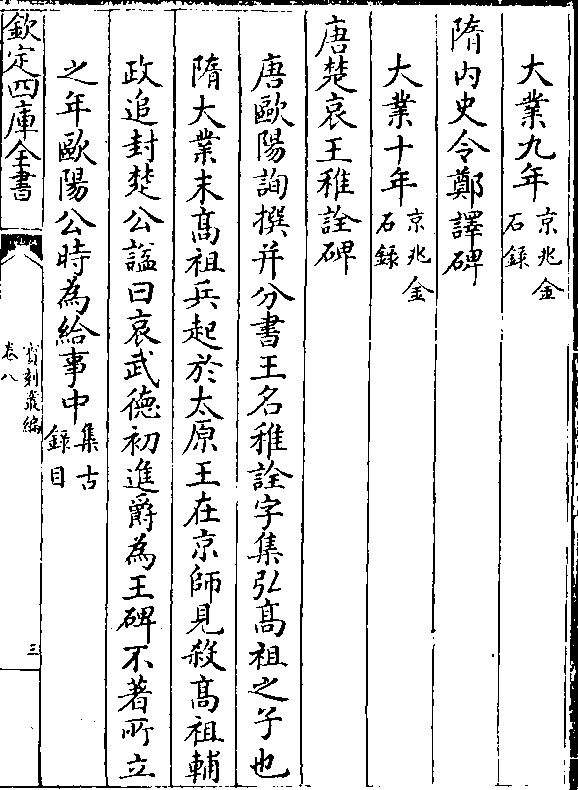 大業九年京兆金石録
隋内史令鄭譯碑
大業十年京兆金石録
唐楚哀王稚詮碑
唐歐陽詢撰并分書王名稚詮字集弘髙祖之子也
隋大業末髙祖兵起於太原王在京師見殺髙祖輔
政追封楚公諡曰哀武徳初進爵為王碑不著所立
之年歐陽公時為給事中集古録目
欽定四庫全書
寳刻叢編
卷八
三